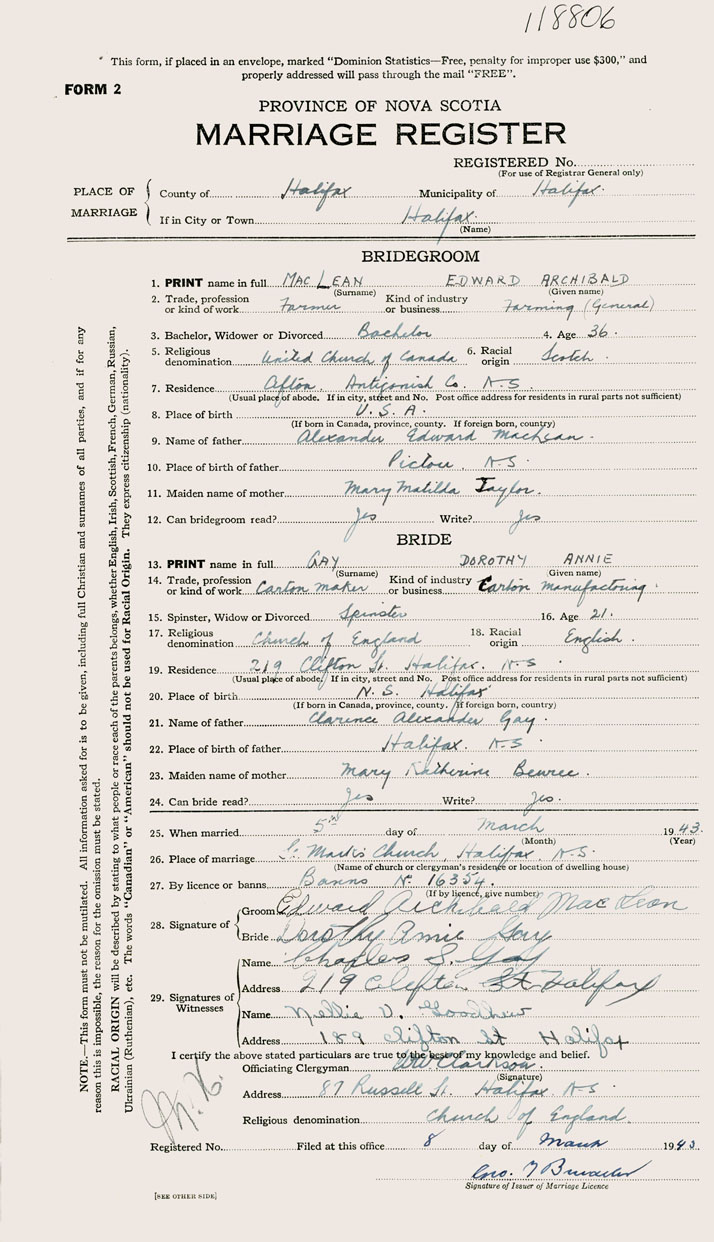 118806
* This form, if placed in an envelope, marked "Dominion Statistics—Free, penalty for improper use $300," and
properly addressed will pass through the mail "FREE".
FORM 2
PROVINCE OF NOVA SCOTIA
MARRIAGE REGISTER
REGISTERED No.
(For use of Registrar General only)
PLACE OF MARRIAGE
County of Halifax Municipality of Halifax.
If in City or Town Halifax.
(Name)
BRIDEGROOM
1. PRINT name in full MAC LEAN EDWARD ARCHIBALD
(Surname) (Given name)
2. Trade, profession or kind of work Farmer Kind of industry or business Farming (General)
3. Bachelor, Widower or Divorced Bachelor 4. Age 36.
5. Religious denomination United Church of Canada 6. Racial origin Scotch.
7. Residence Afton Antigonish Co. N.S
(Usual place of abode. If in city, street and No. Post office address for residents in rural parts not sufficient)
8. Place of birth U.S.A.
(If born in Canada, province, county. If foreign born, country)
9. Name of father Alexander Edward MacLean.
10. Place of birth of father Pictou, N.S.
11. Maiden name of mother Mary Matilda Taylor.
12. Can bridegroom read? Yes Write? Yes
BRIDE
13. PRINT name in full GAY DOROTHY ANNIE
(Surname) (Given name)
14. Trade, profession or kind of work Carton maker Kind of industry or business Carton manufactoring.
15. Spinster, Widow or Divorced Spinster 16. Age 21.
17. Religious denomination Church of England 18. Racial origin English.
19. Residence 219 Clifton St. Halifax. N.S
(Usual place of abode. If in city, street and No. Post office address for residents in rural parts not sufficient)
20. Place of birth N.S. Halifax
(If born in Canada, province, county. If foreign born, country)
21. Name of father Clarence Alexander Gay.
22. Place of birth of father Halifax. N.S
23. Maiden name of mother Mary Katherine
24. Can bride read? Yes Write? Yes.
25. When married 5th day of March 1943.
(Month) (Year)
26. Place of marriage St Mark's Church, Halifax, N.S.
(Name of church or clergyman's residence or location of dwelling house)
27. By licence or banns Banns No. 16354.
(If by licence, give number)
28. Signature of
Groom Edward Archibald MacLean
Bride Dorothy Annie Gay
29. Signatures of Witnesses
Name Charles S. Gay
Address 219 Clifton St Halifax
Name Nellie V. Goodhew
Address 189 Clifton St Halifax
I certify the above stated particulars are true to the best of my knowledge and belief.
Officiating Clergyman Clarkson.
(Signature)
Address 87 Russell St. Halifax. N.S
Religious denomination Church of England.
Registered No. Filed at this office 8 day of March 1943.
Geo.
Signature of Issuer of Marriage Licence
[SEE OTHER SIDE]
NOTE.—This form must not be mutilated. All information asked for is to be given, including full Christian and surnames of all parties, and if for any
reason this is impossible, the reason for the omission must be stated.
RACIAL ORIGIN will be described by stating to what people or race each of the parents belongs, whether English, Irish, Scottish, French, German, Russian,
Ukrainian (Ruthenian), etc. The words "Canadian" or "American" should not be used for Racial Origin. They express citizenship (nationality).